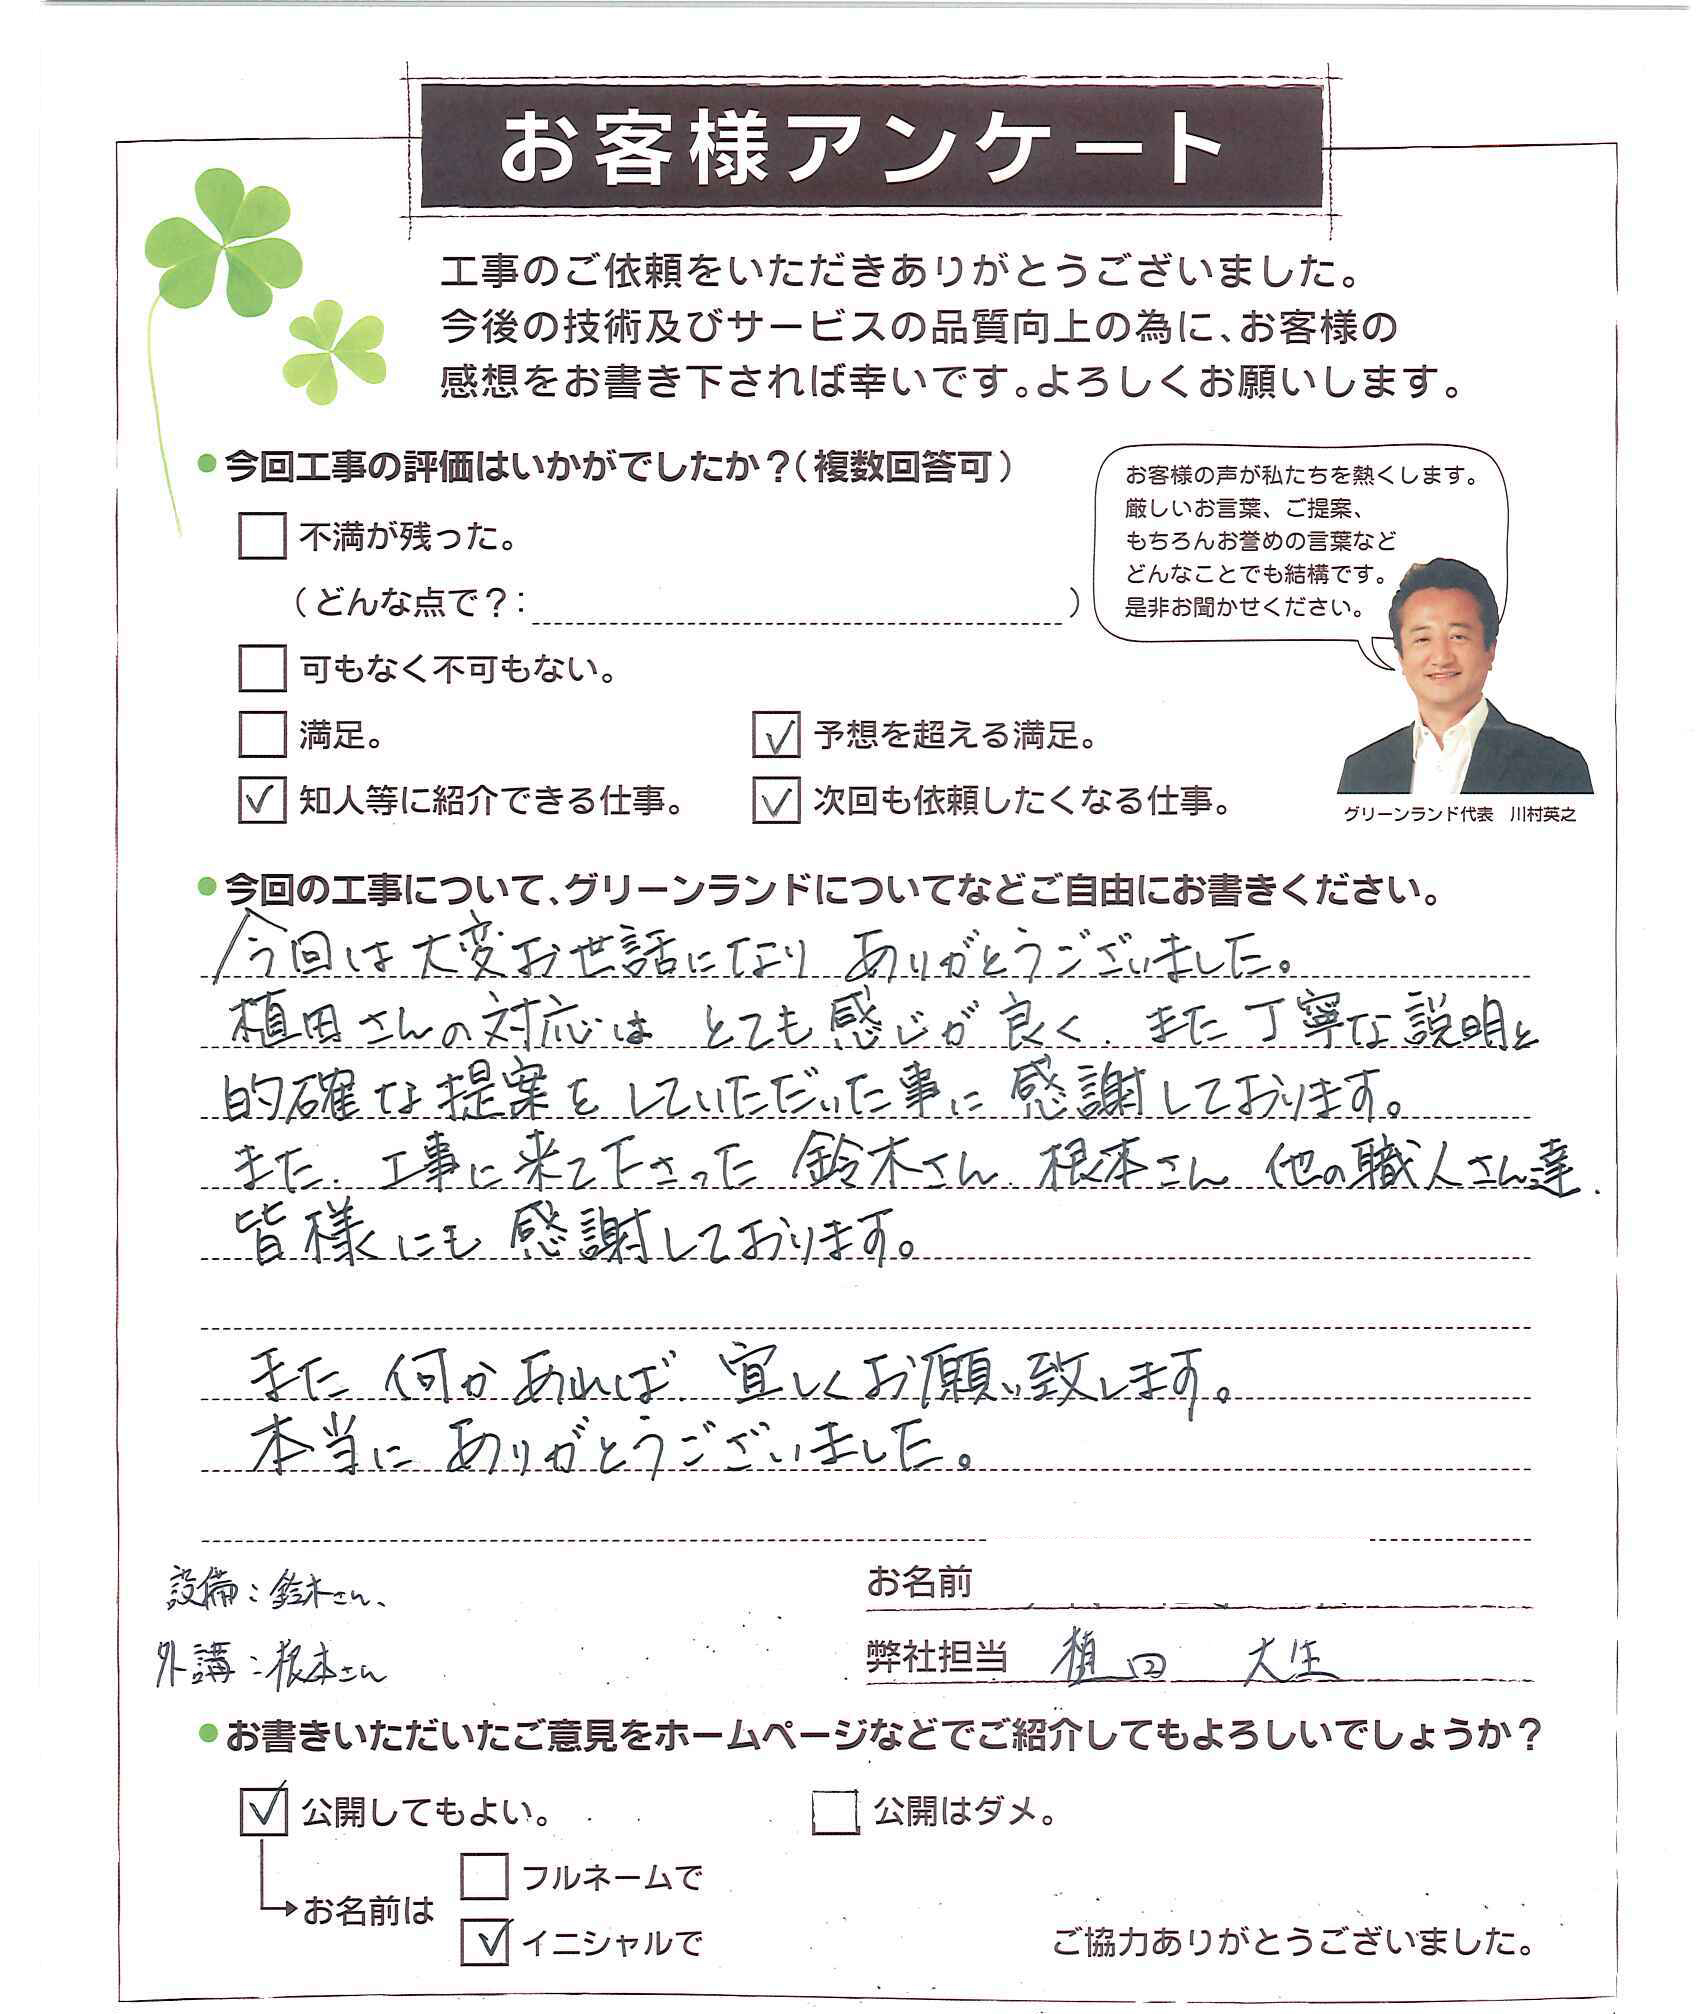 お客様アンケート
工事のご依頼をいただきありがとうございました。
今後の技術及びサービスの品質向上の為に、お客様の
感想をお書き下されば幸いです。よろしくお願いします。
●今回工事の評価はいかがでしたか？（複数回答可）
不満が残った。
（どんな点で？：　　　）
可もなく不可もない。
満足。
予想を超える満足。
知人等に紹介できる仕事。
次回も依頼したくなる仕事。
お客様の声が私たちを熱くします。
厳しいお言葉、ご提案、
もちろんお誉めの言葉など
どんなことでも結構です。
是非お聞かせください。
グリーンランド代表　川村英之
●今回の工事について、グリーンランドについてなどご自由にお書きください。
今回は大変お世話になり ありがとうございました。
植田さんの対応は とても感じが良く、また丁寧な説明と
的確な提案をしていただいた事に感謝しております。
また、工事に来て下さった 鈴木さん、根本さん 他の職人さん達、
皆様にも感謝しております。
また 何かあれば、宜しくお願い致します。
本当に ありがとうございました。
設備：鈴木さん、
外講：根本さん
お名前
弊社担当　植田　大生
●お書きいただいたご意見をホームページなどでご紹介してもよろしいでしょうか？
公開してもよい。
公開はダメ。
お名前は
フルネームで
イニシャルで
ご協力ありがとうございました。